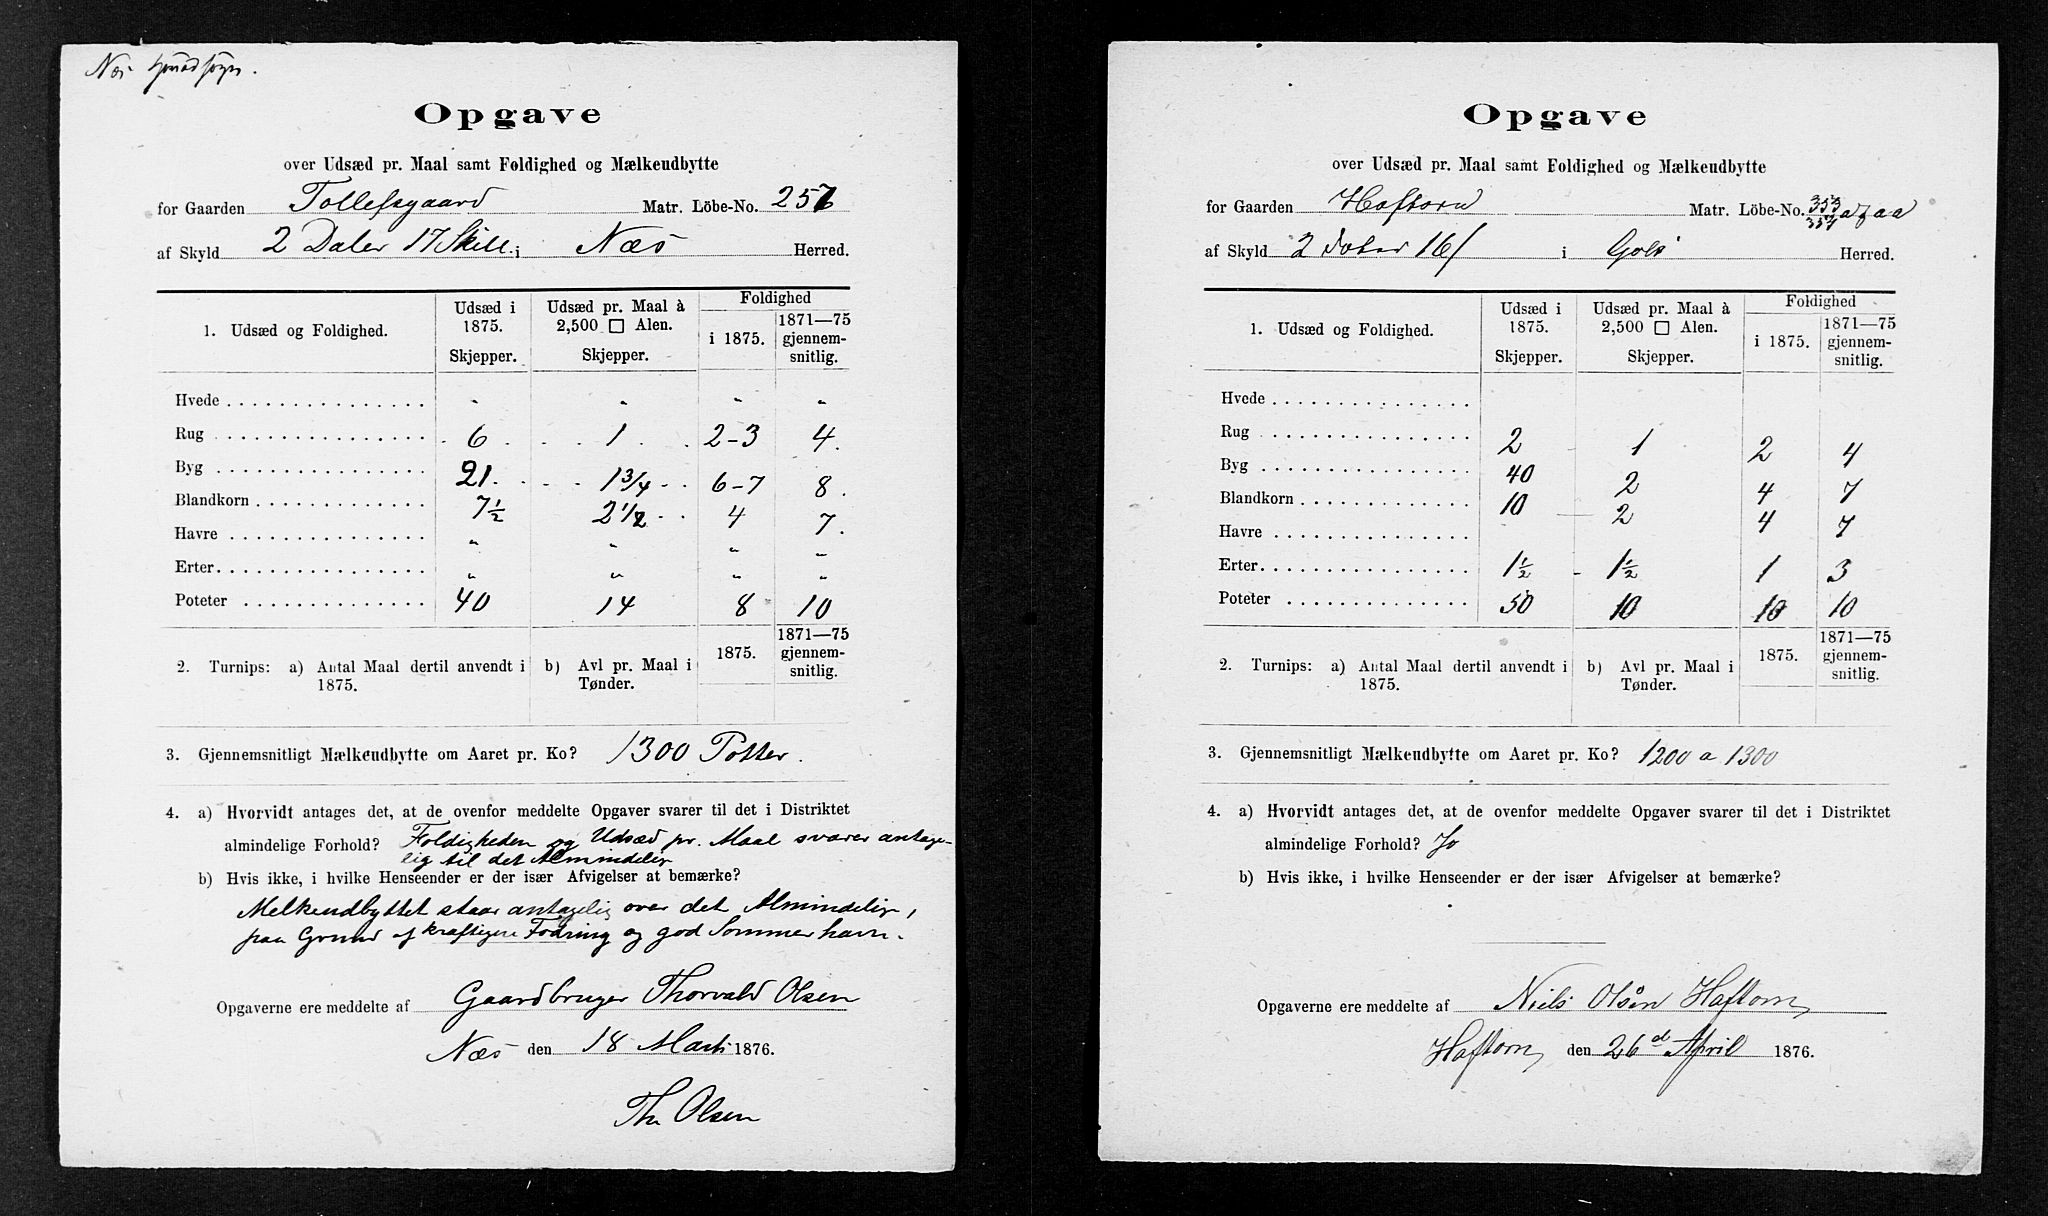 Opgave
over Udsæd pr. Maal samt Foldighed og Mælkeudbytte
for Gaarden Tollefsgaard Matr. Löbe-No.
af Skyld 2 Daler 17 Skill i Næs Herred.
1. Udsæd og Foldighed. Udsæd i 1875. Skjepper. Udsæd pr. Maal à 2,500 □ Alen. Skjepper. Foldighed i 1875. 1871—75 gjennem-snitlig.
Hvede " " " "
Rug 6 1 2-3 4.
Byg 21 1 3/4 6-7 8.
Blandkorn 7 1/2 2 1/2 4 7.
Havre " " " "
Erter " " " "
Poteter 40 14 8 10
2. Turnips: a) Antal Maal dertil anvendt i 1875. b) Avl pr. Maal i Tønder. 1875. 1871—75 gjennem-snitlig.
3. Gjennemsnitligt Mælkeudbytte om Aaret pr. Ko? 1300 Potter.
4. a) Hvorvidt antages det, at de ovenfor meddelte Opgaver svarer til det i Distriktet
almindelige Forhold? Foldigheden og Udsæd pr. Maal svarer antage-
lig til det Almindelig
b) Hvis ikke, i hvilke Henseender er der især Afvigelser at bemærke?
Melkeudbyttet staar antagelig over det Almindelig,
paa Grund af kraftigere Fodring og god Sommerhavn.
Opgaverne ere meddelte af Gaardbruger Thorvald Olsen
Næs den 18 Marts 1876.
Th. Olsen
Opgave
over Udsæd pr. Maal samt Foldighed og Mælkeudbytte
for Gaarden Haftorn Matr. Löbe-No.
af Skyld 2 Daler 16 i Gols Herred.
1. Udsæd og Foldighed. Udsæd i 1875. Skjepper. Udsæd pr. Maal à 2,500 □ Alen. Skjepper. Foldighed i 1875. 1871—75 gjennem-snitlig.
Hvede
Rug 2 1 2 4
Byg 40 2 4 7
Blandkorn 10 2 4 7
Havre
Erter 1 1/2 1 1/2 1 3
Poteter 50 10 10 10
2. Turnips: a) Antal Maal dertil anvendt i 1875. b) Avl pr. Maal i Tønder. 1875. 1871—75 gjennem-snitlig.
3. Gjennemsnitligt Mælkeudbytte om Aaret pr. Ko? 1200 a 1300
4. a) Hvorvidt antages det, at de ovenfor meddelte Opgaver svarer til det i Distriktet
almindelige Forhold? Jo
b) Hvis ikke, i hvilke Henseender er der især Afvigelser at bemærke?
Opgaverne ere meddelte af Niels Olsen Haftorn
Haftorn den 26d April 1876.